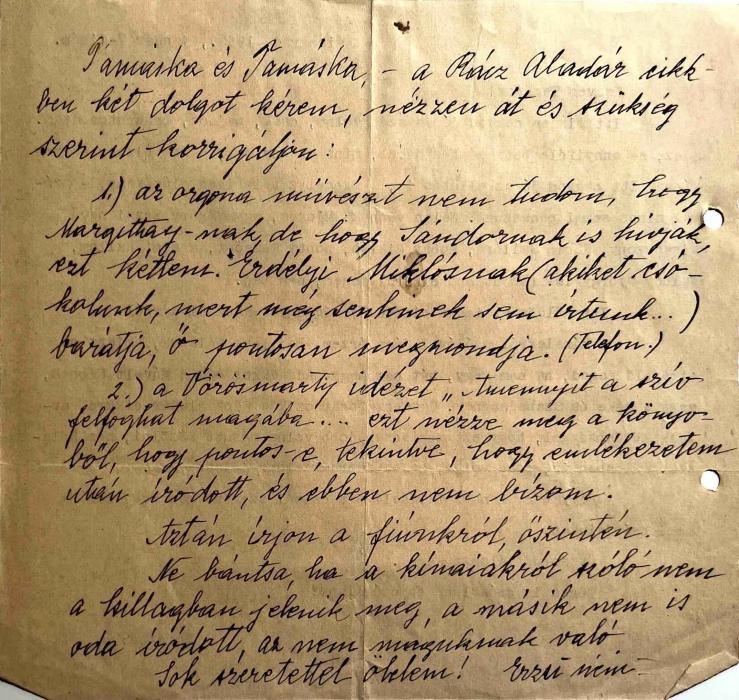 Tamáska és Tamáska, - a Rácz Aladár cikk-
ben két dolgot kérem, nézzen át és szükség
szerint korrigáljon:
1.) az orgona művészt nem tudom, hogy
Margittay-nak, de hogy Sándornak is hívják,
ezt kétlem. Erdélyi Miklósnak (akiket csó-
kolunk, mert még senkinek sem írtunk...)
barátja, ő pontosan megmondja. (Telefon.)
2.) a Vörösmarty idézet „Amennyit a szív
felfoghat magába.... ezt nézze meg a könyv-
ből, hogy pontos-e, tekintve, hogy emlékezetem
után íródott, és ebben nem bízom.
Aztán írjon a fiúnkról, őszintén.
Ne bántsa, ha a kínaiakról szóló nem
a Csillagban jelenik meg, a másik nem is
oda íródott, az nem maguknak való.
Sok szeretettel ölelem! Erzsi néni